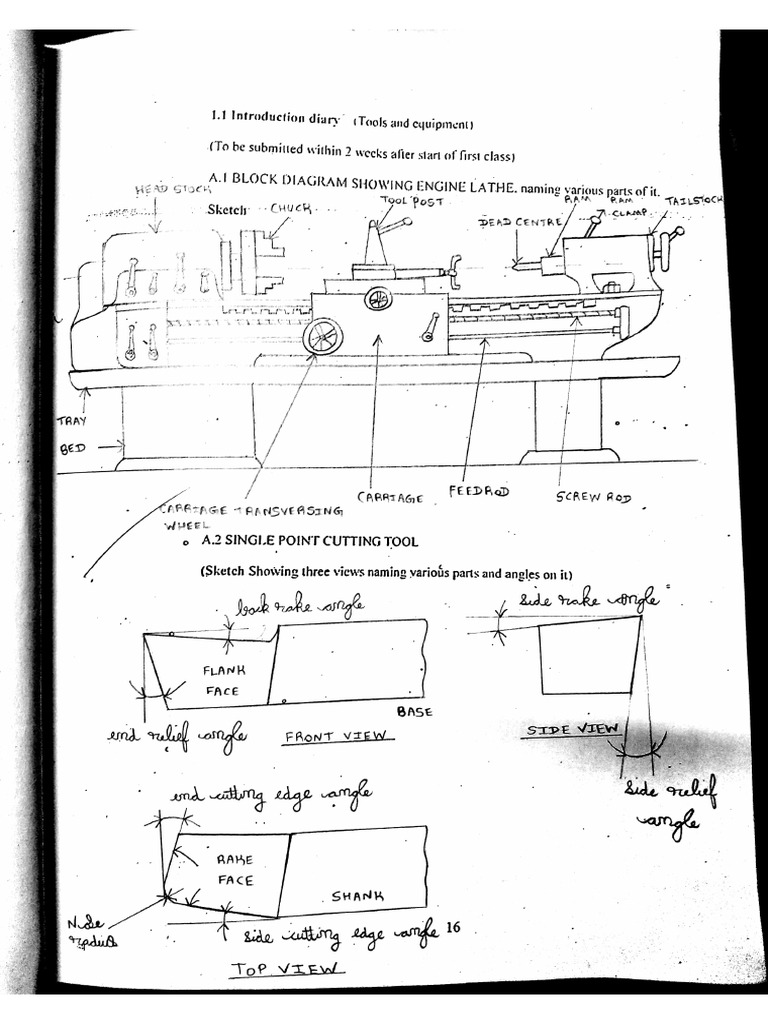 1.1 Introduction diary (Tools and equipment)
(To be submitted within 2 weeks after start of first class)
A.1 BLOCK DIAGRAM SHOWING ENGINE LATHE. naming various parts of it.
Sketch
HEAD STOCK
CHUCK
TOOL POST
DEAD CENTRE
RAM
RAM CLAMP
TAILSTOCK
TRAY
BED
CARRIAGE TRANSVERSING
WHEEL
CARRIAGE
FEEDROD
SCREW ROD
A.2 SINGLE POINT CUTTING TOOL
(Sketch Showing three views naming various parts and angles on it)
back rake angle
side rake angle
FLANK
FACE
BASE
end relief angle
FRONT VIEW
SIDE VIEW
side relief
angle
end cutting edge angle
RAKE
FACE
SHANK
Nose
radius
side cutting edge angle
16
TOP VIEW